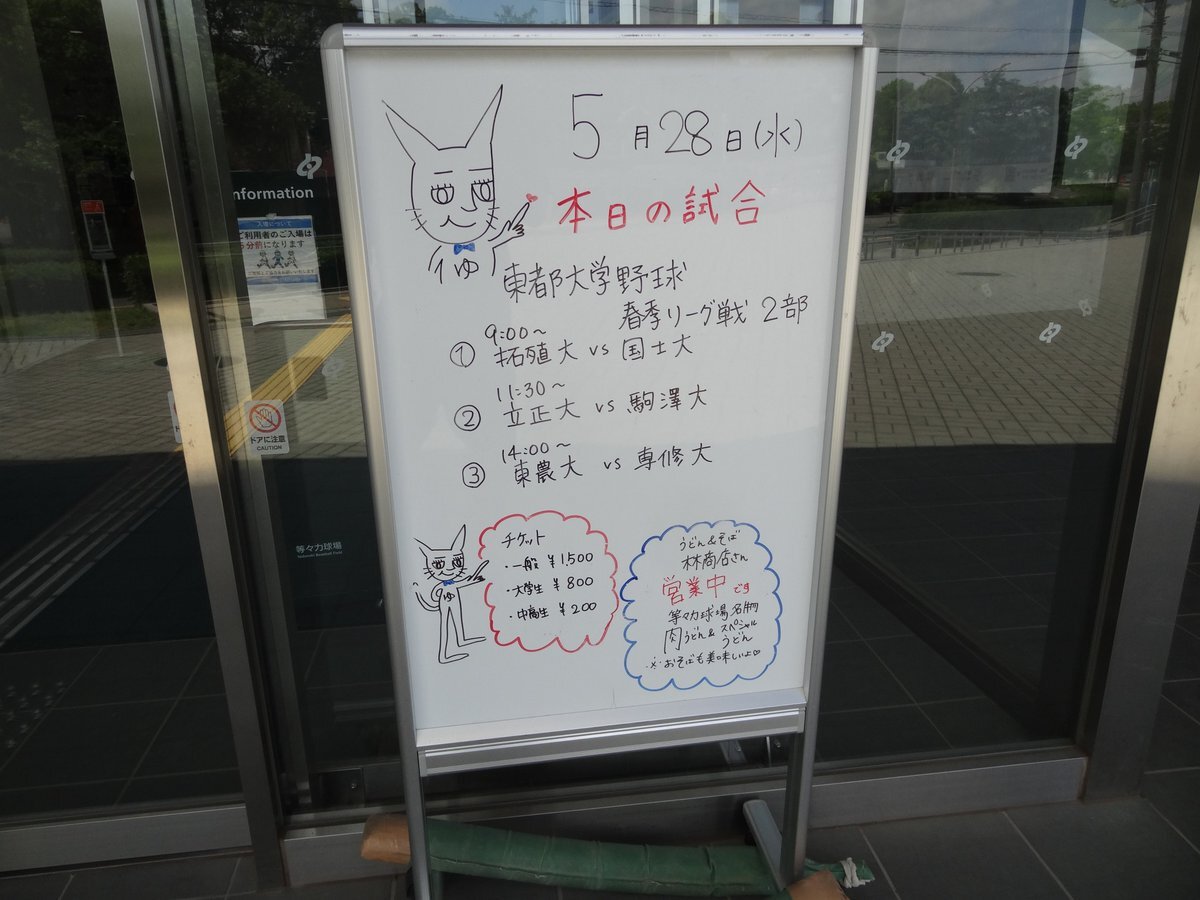 5月28日(水)
本日の試合
ゆ
東都大学野球
春季リーグ戦 2部
9:00～
① 拓殖大 vs 国士大
11:30～
② 立正大 vs 駒澤大
14:00～
③ 東農大 vs 専修大
チケット
・一般 ¥1,500
・大学生 ¥800
・中高生 ¥200
ゆ
うどん&そば
林商店さん
営業中です
等々力球場名物
肉うどん&スペシャル
うどん
※おそばも美味しいよ♡
Information
入場について
ご利用者のご入場は
5分前になります
ドアに注意
CAUTION
等々力球場
Todoroki Baseball Field